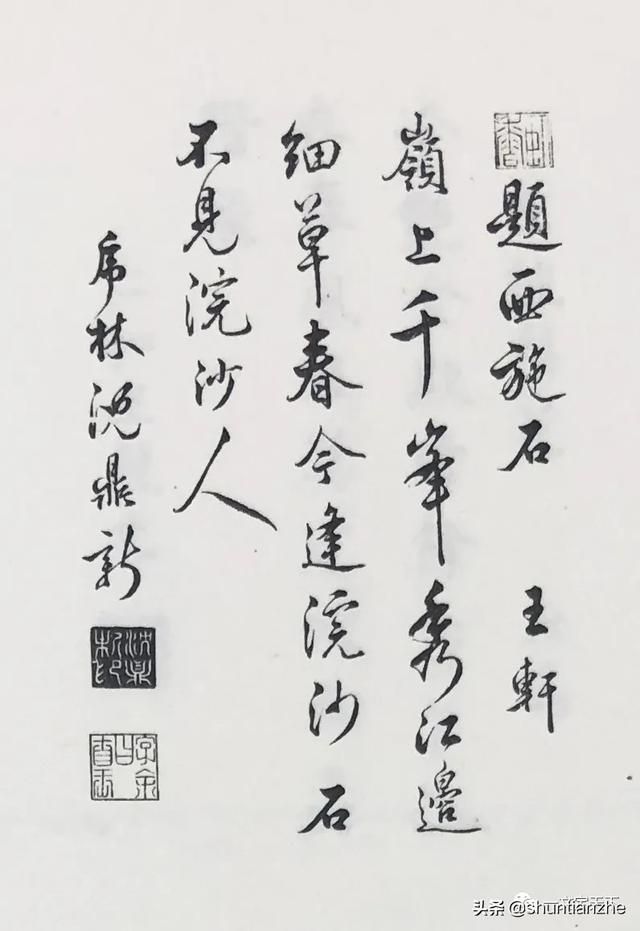 題西施石 王軒
嶺上千峯秀江邊
細草春今逢浣沙石
不見浣沙人
虎林沈鼎新
沈鼎新印
头条 @shuntianzhe